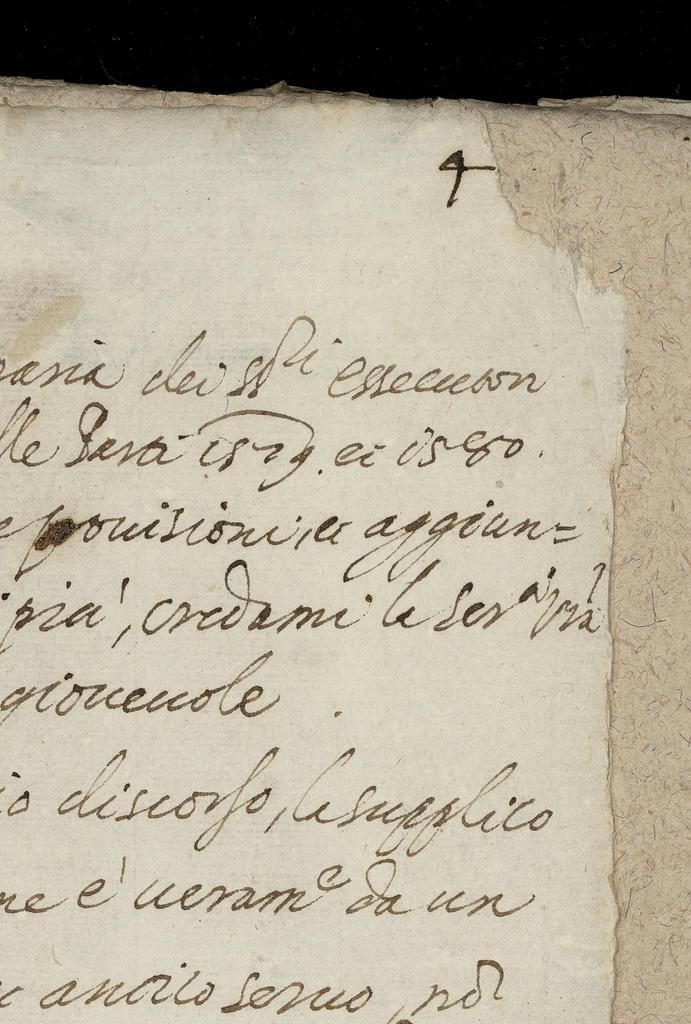 4
dei ss.ri essecutori
lle 1579. et 1580.
e prouisioni, et aggiun=
più, credami la Ser.a V.ra
gioueuole
io discorso, la supplico
me è ueram.e da un
antico seruo,